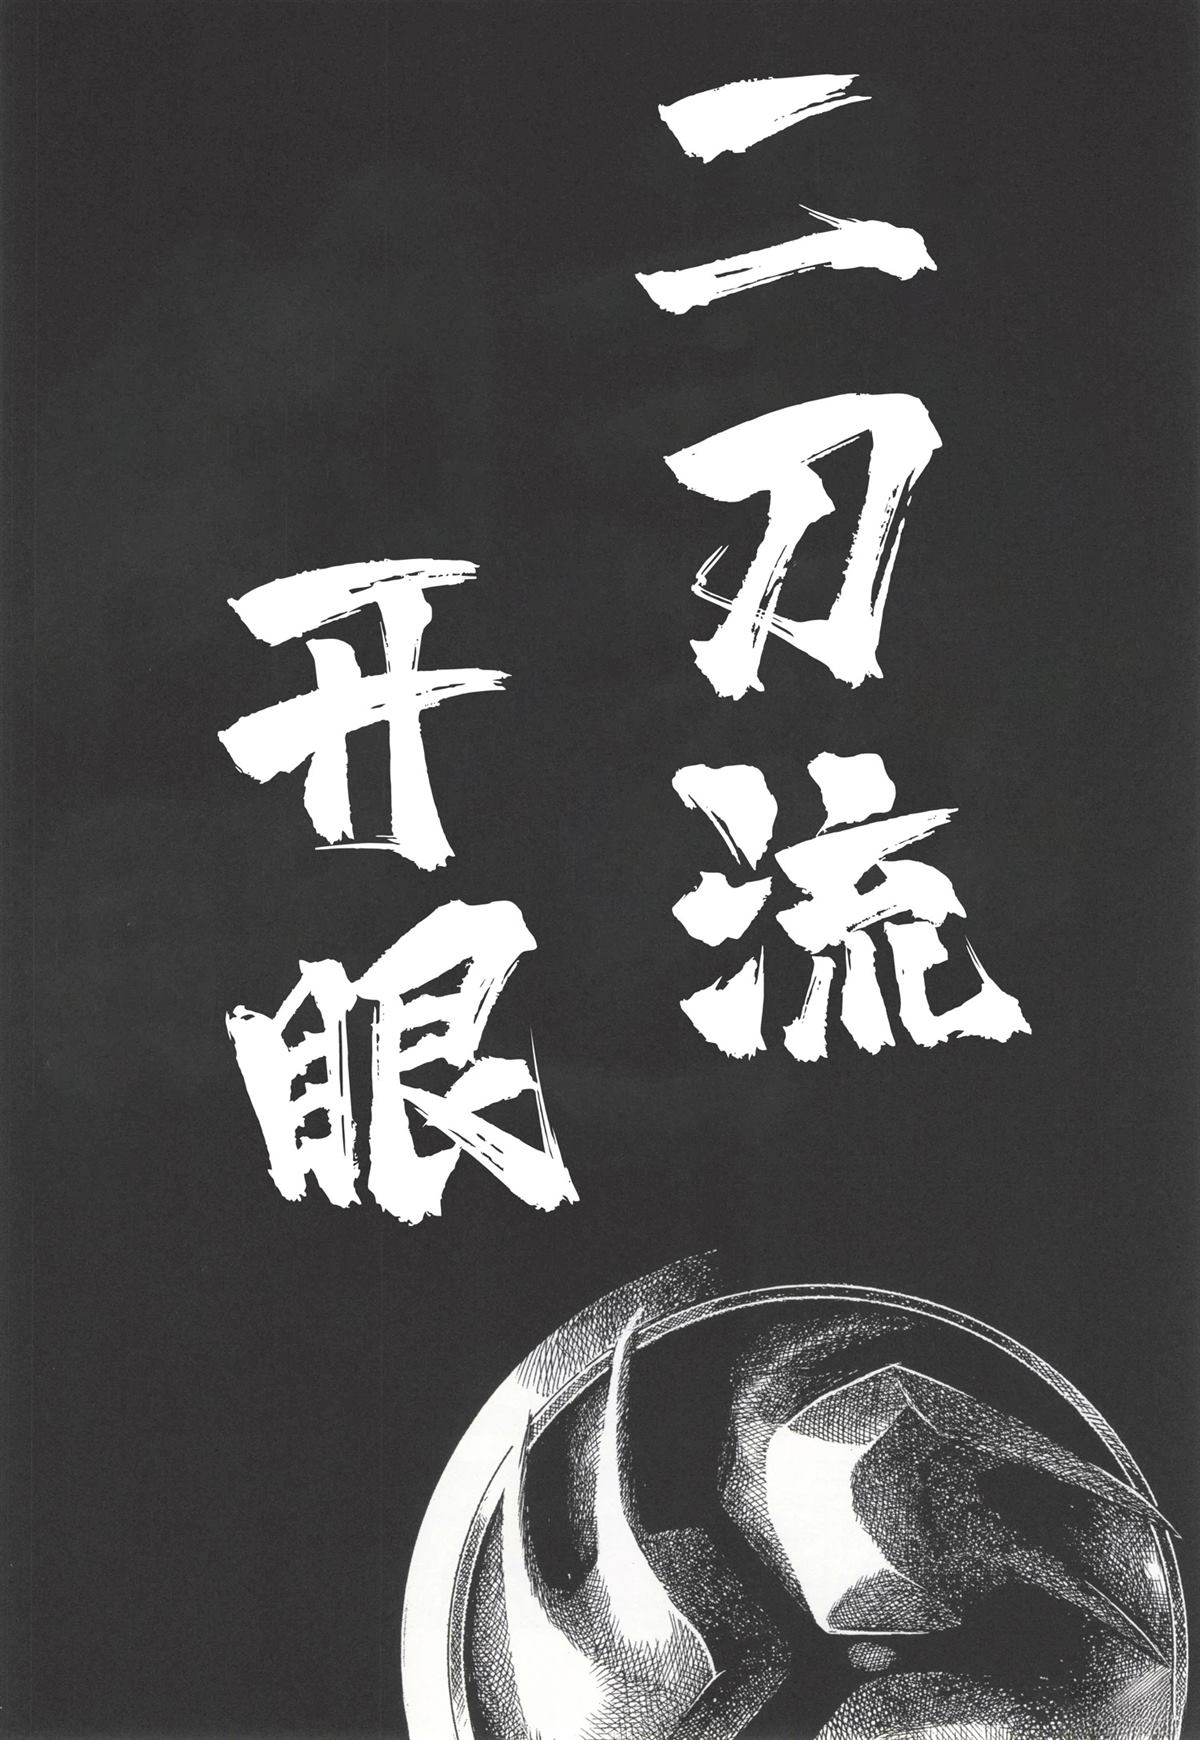 二刀流
开眼